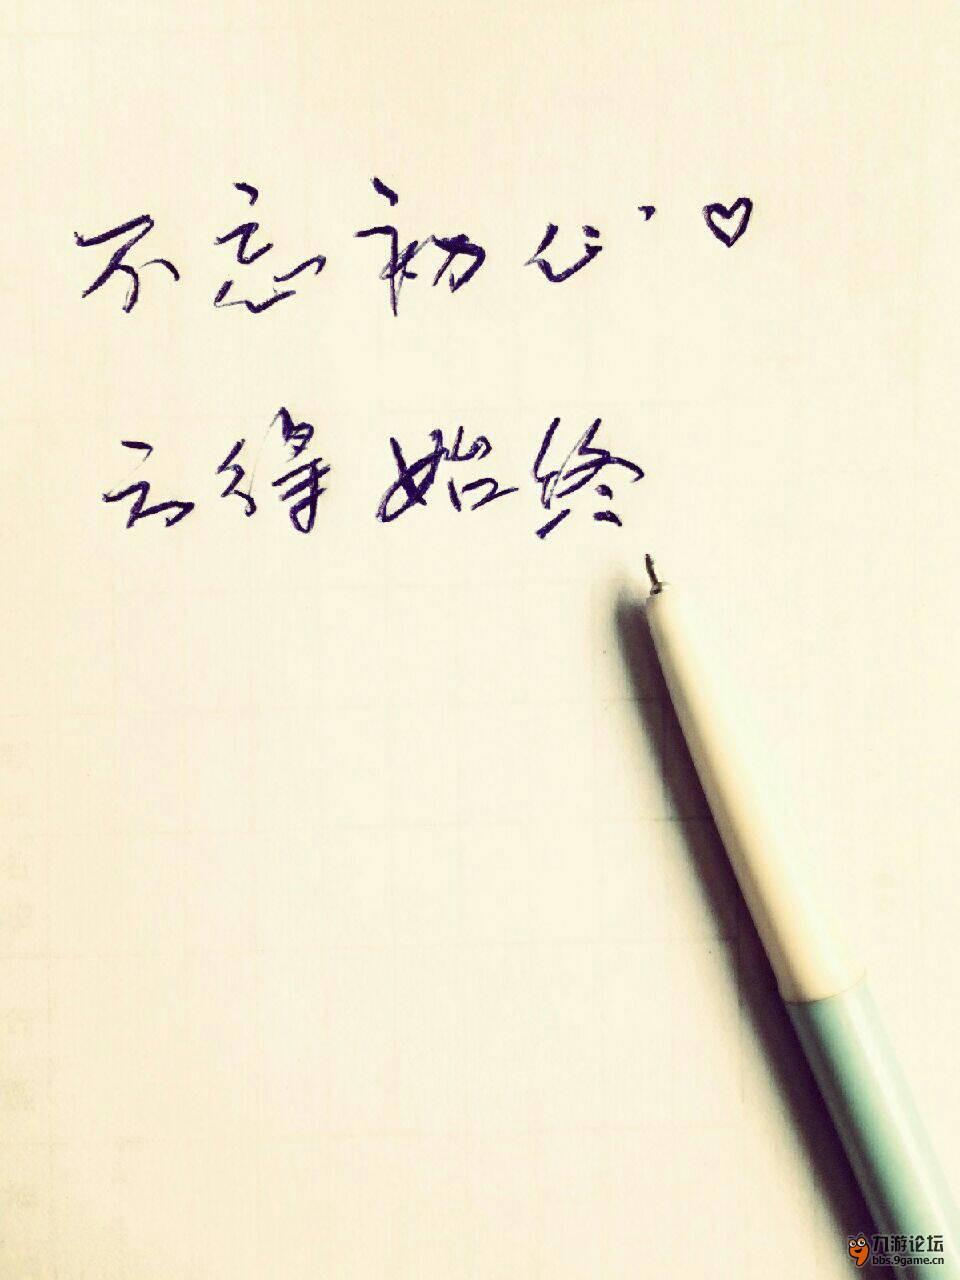 不忘初心 ♡
云得始终
九游论坛
bbs.9game.cn